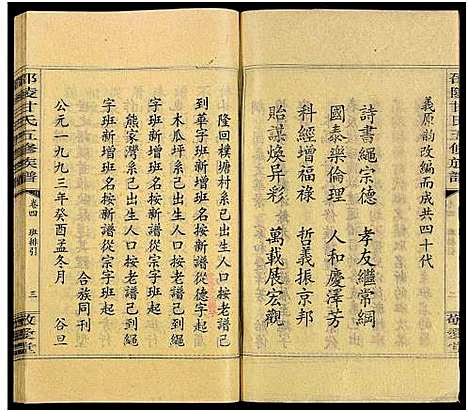 邵陵甘氏五修族譜
義原韵改編而成共四十代
詩書繩宗德 孝友繼常綱
國泰樂倫理 人和慶澤芳
科經增福祿 哲義振京邦
貽謀煥昇彩 萬載展宏觀
隆回樸塘村系己出生人口按老譜己
到華字班始按新譜從德字起
木瓜坪系己出生人口按老譜己到繩
字班止新增按新譜從宗字班起
熊家灣系己出生人口按老譜己到繩
字班新增班按新譜從宗字班起
公元一九九三年癸酉孟冬月 谷旦
合族同刊
邵陵甘氏五修族譜
卷四 班排引
三
敬愛堂